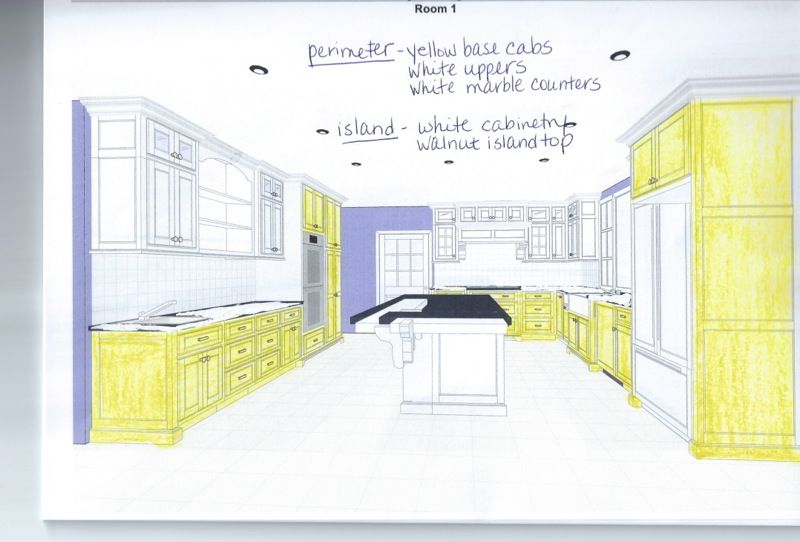 Room 1
perimeter - yellow base cabs
white uppers
white marble counters
island - white cabinetry
walnut island top